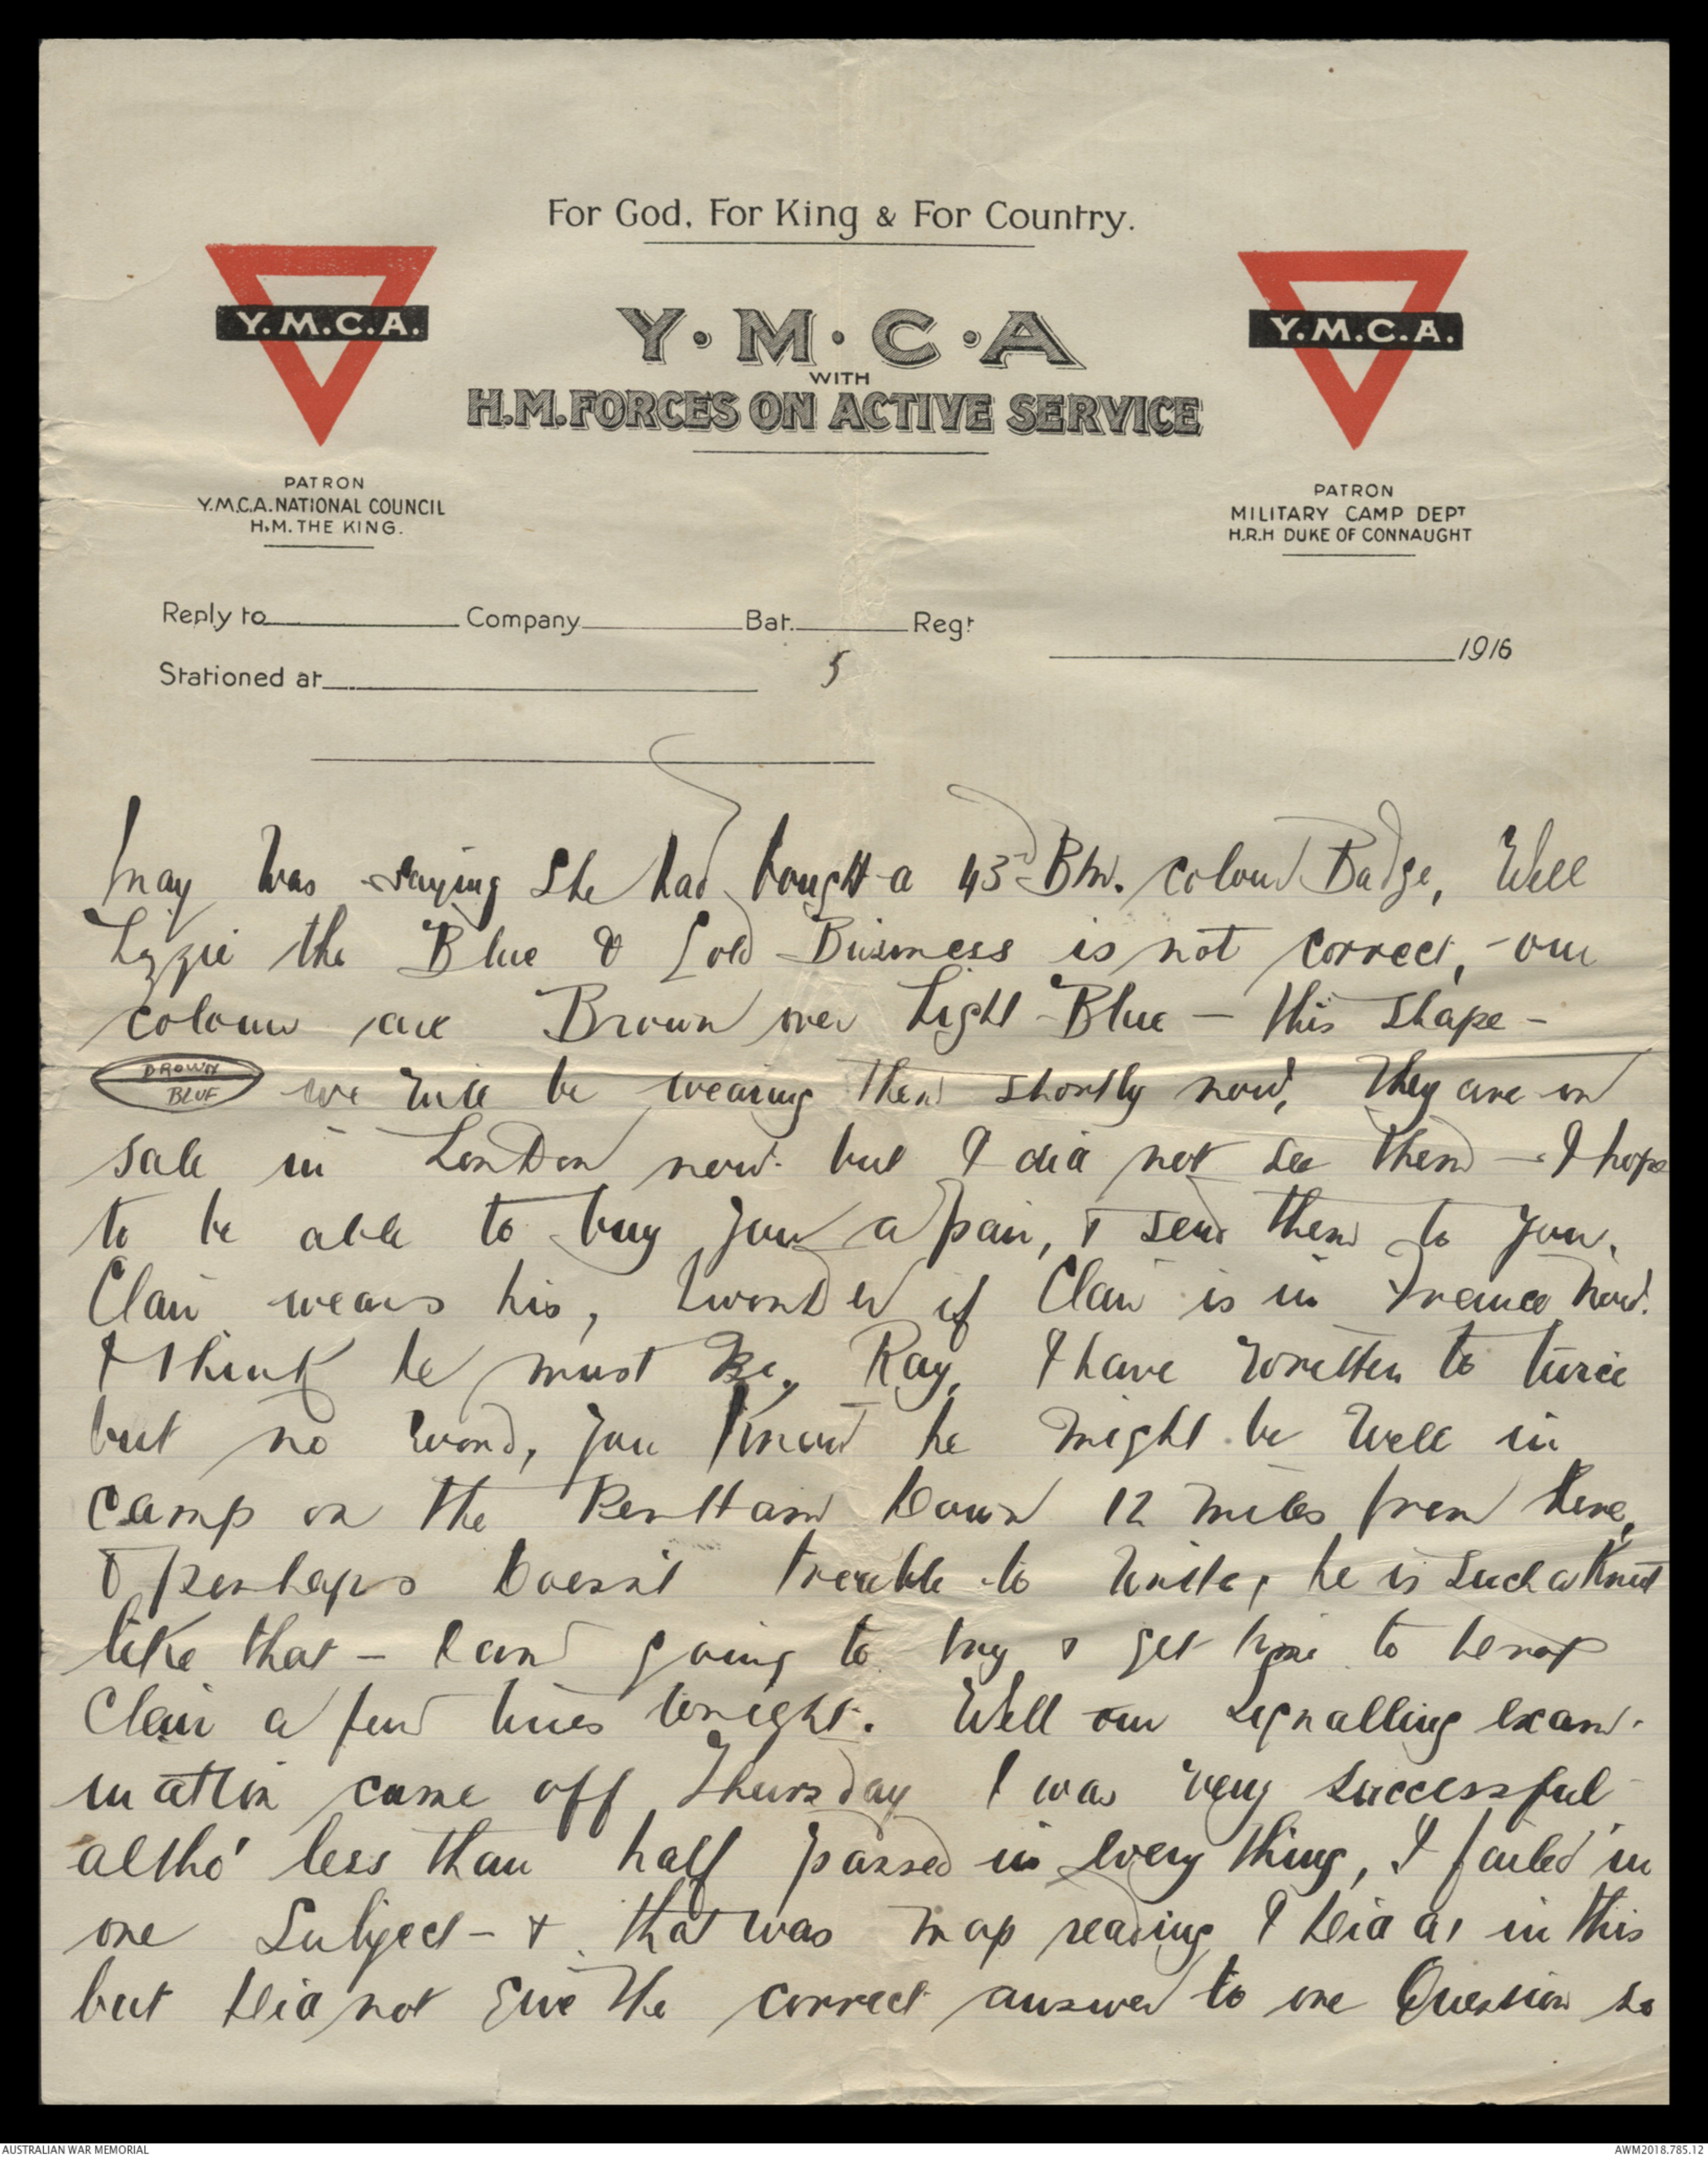 For God, For King & For Country.
Y.M.C.A.
Y·M·C·A
WITH
H.M. FORCES ON ACTIVE SERVICE
Y.M.C.A.
PATRON
Y.M.C.A. NATIONAL COUNCIL
H.M. THE KING.
PATRON
MILITARY CAMP DEPT
H.R.H DUKE OF CONNAUGHT
Reply to Company Bat. Regt
1916
Stationed at
5
May was saying she had bought a 43rd Btn. colour Badge, Well
Lizzie the Blue & Gold Business is not correct, - our
colours are Brown over Light Blue - this shape -
BROWN
BLUE
we will be wearing them shortly now, They are on
sale in London now but I did not see them - I hope
to be able to buy you a pair, & send them to you,
Clair wears his, I wonder if Clair is in France now.
I think he must be, Ray, I have written to twice
but no word, you know he might be well in
camp on the Down 12 miles from here,
& perhaps doesn't trouble to write, he is such a
like that - I am going to try & get time to
Clair a few lines tonight. Well our signalling exam-
ination came off Thursday I was very successful
altho' less than half passed in every thing, I failed in
one subject - & that was map reading I did a1 in this
but did not give the correct answer to one Question so
AUSTRALIAN WAR MEMORIAL
AWM2018.785.12